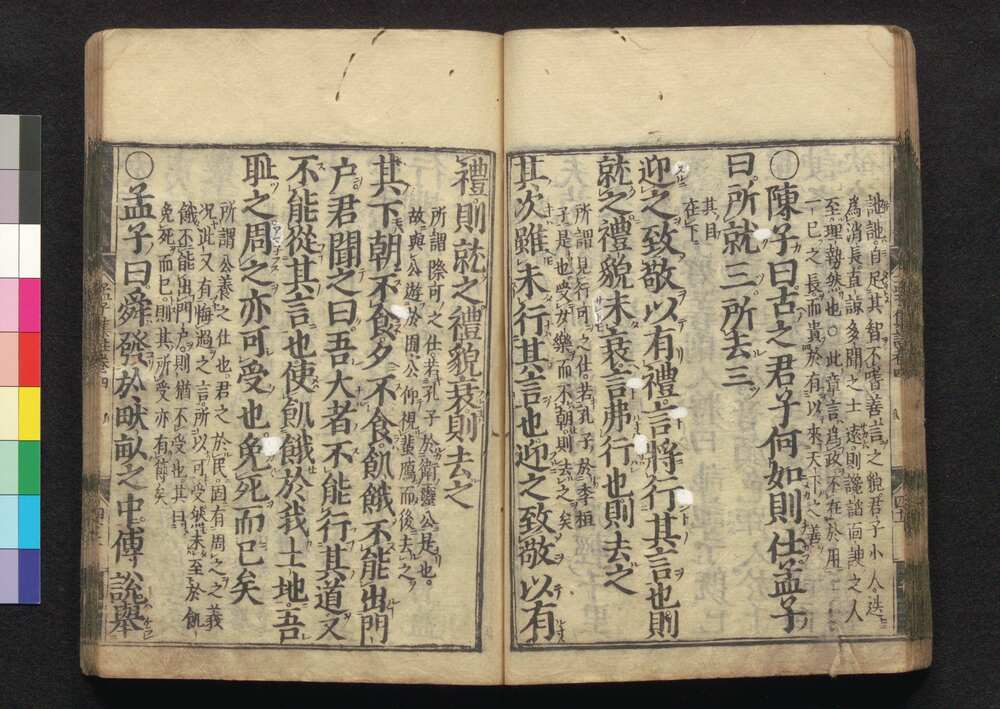 訑訑自足其智不嗜善言之貌君子小人迭
為消長直諒多聞之士遠則讒諂面諛之人
至理勢然也○此章言為政不在於用
一己之長而貴於有以來天下之善
○陳子曰古之君子何如則仕孟子
曰所就三所去三
其目
在下
迎之致敬以有禮言將行其言也則
就之禮貌未衰言弗行也則去之
所謂見行可之仕若孔子於季桓
子是也受女樂而不朝則去之矣
其次雖未行其言也迎之致敬以有
禮則就之禮貌衰則去之
所謂際可之仕若孔子於衛靈公是也
故與公遊於囿公仰視蜚鴈而後去之
其下朝不食夕不食飢餓不能出門
户君聞之曰吾大者不能行其道又
不能從其言也使飢餓於我土地吾
耻之周之亦可受也免死而已矣
所謂公養之仕也君之於民固有周之之義
况此又有悔過之言所以可受然未至於飢
餓不能出門户則猶不受也其曰
免死而已則其所受亦有節矣
○孟子曰舜發於畎畝之中傅說舉